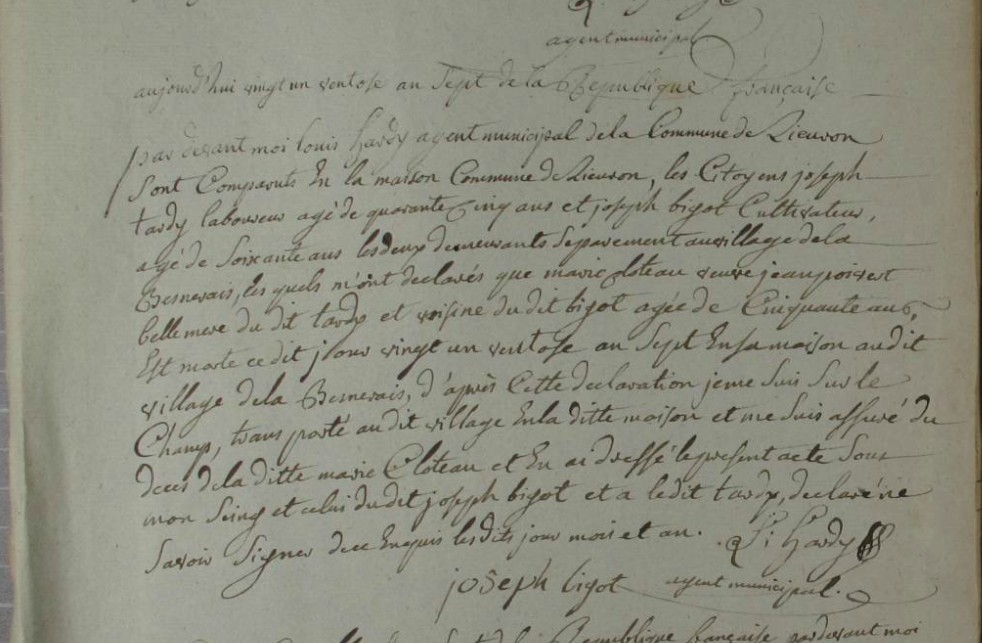 agent municipal
aujourd'hui vingt un ventose an Sept de la Republique française
par devant moi louis hardy agent municipal de la Commune de Lieuron
Sont Comparuts En la maison Commune de Lieuron, les Citoyens joseph
tardy laboureur agé de quarante Cinq ans et joseph bigot Cultivateur,
agé de Soixante ans les deux demeurants Séparement au village de la
Besnerais, les quels m'ont declarés que marie Cloteau veuve jean poisvert
belle mere du dit tardy et voisine du dit bigot agée de Cinquante ans,
Est morte ce dit jour vingt un ventose an Sept En sa maison au dit
village de la Besnerais, d'après Cette declaration je me Suis Sur le
Champ, trans porté au dit village En la ditte maison et me Suis assuré du
deces de la ditte marie Cloteau et En ai dressé le present acte Sous
mon Seing et celui du dit joseph bigot et a le dit tardy, declaré ne
Savoir Signer de ce Enquis les dits jour mois et an. L: hardy
joseph bigot agent municipal.
de la Republique française par devant moi